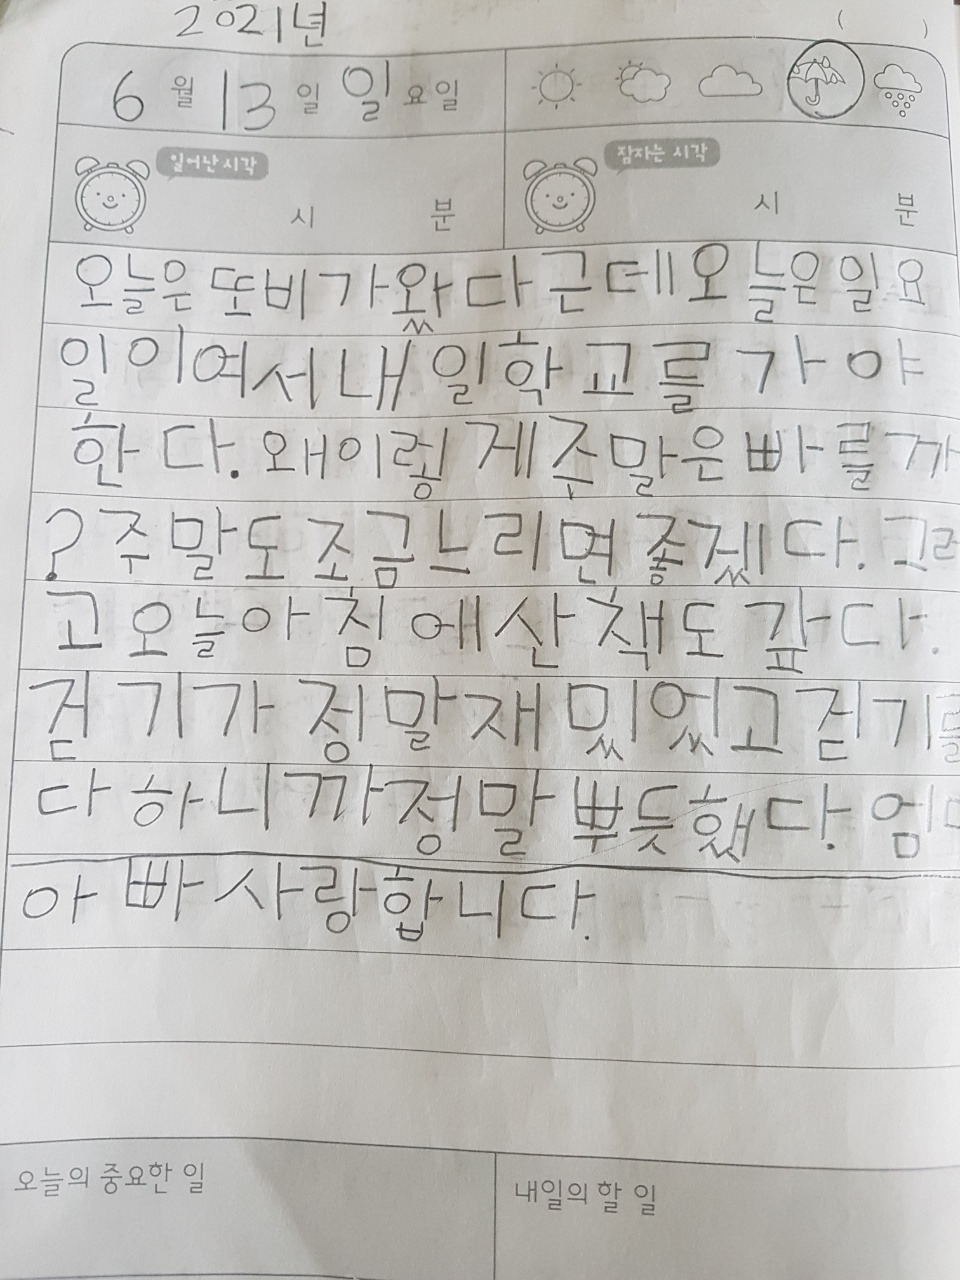 2021년 ( )
6 월 13 일 일 요일
일어난 시각 잠자는 시각
시 분 시 분
오늘은 또 비가 왔다 근데 오늘은 일요
일이여서 내일 학교를 가야
한다. 왜 이렇게 주말은 빠를까
? 주말도 조금 느리면 좋겠다. 그리
고 오늘 아침에 산책도 갔다.
걷기가 정말 재밌었고 걷기를
다 하니까 정말 뿌듯했다. 엄마
아빠 사랑합니다.
오늘의 중요한 일 내일의 할 일